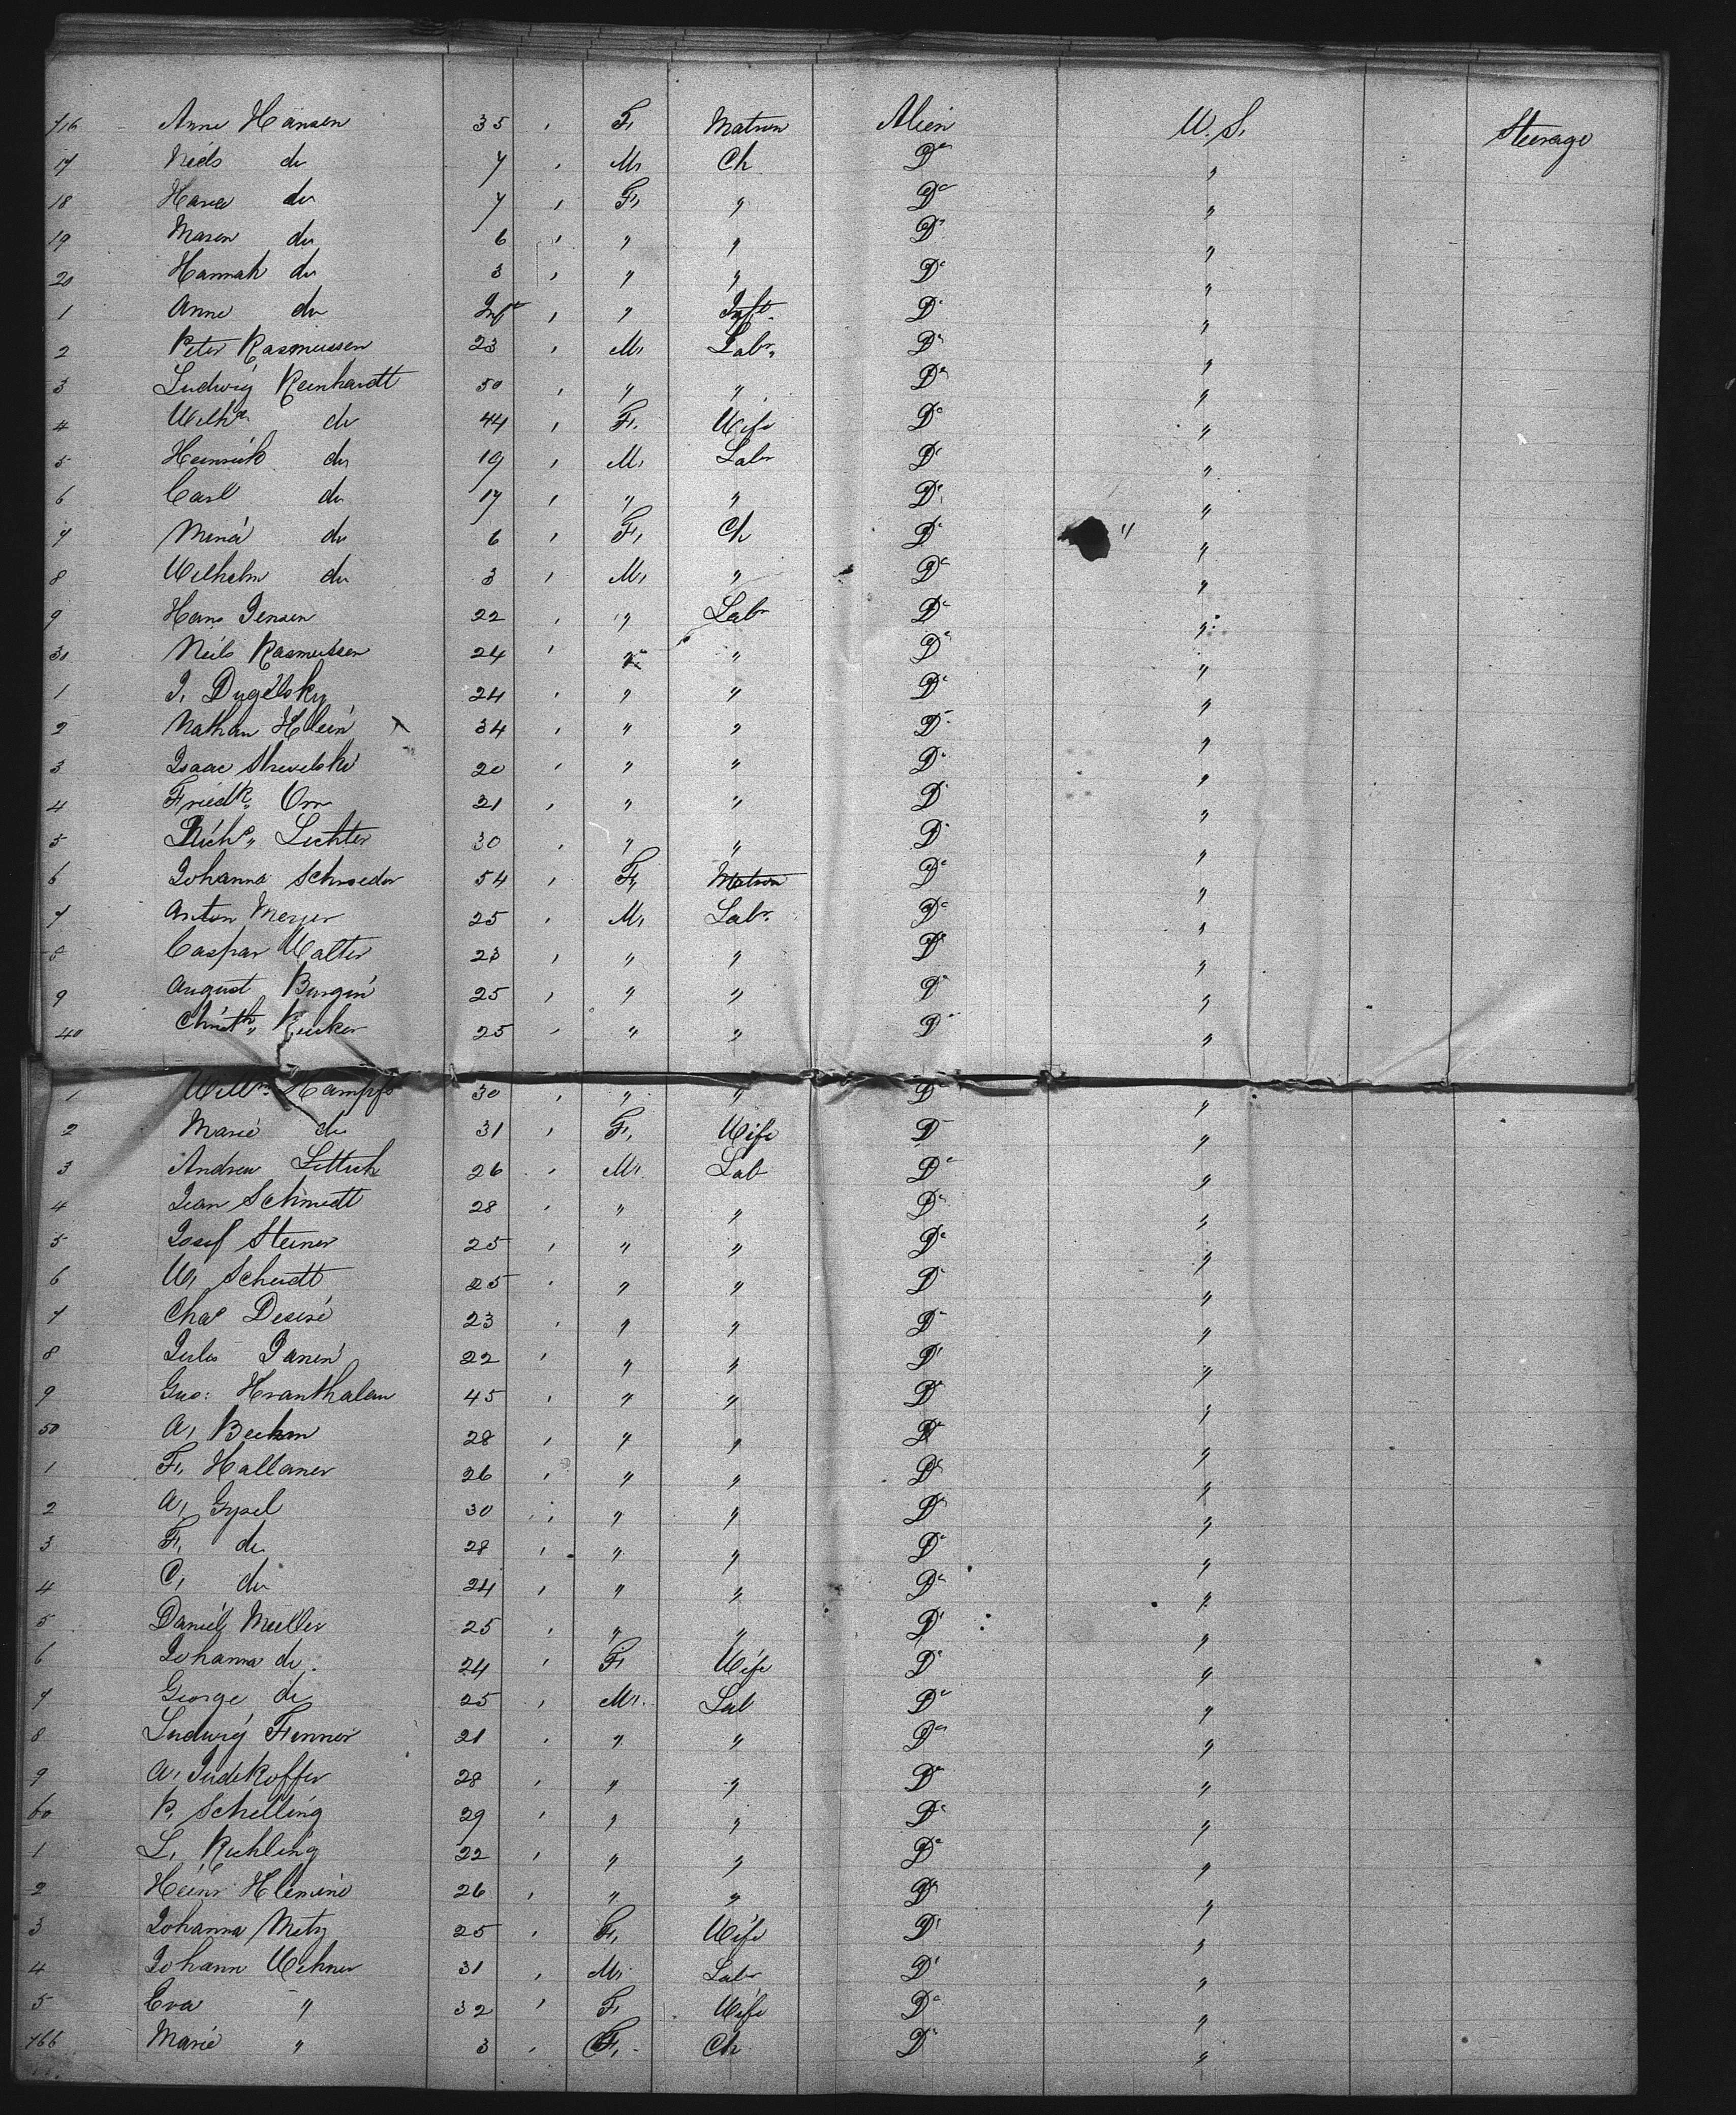 716 Anne Hansen 35 , F, Matron Alien U.S. Steerage
17 Niels do 7 , M, Ch Do "
18 Maria do 7 , F, " Do "
19 Maren do 6 , " " Do "
20 Hannah do 3 , " " Do "
1 Anne do Inft , " Inft. Do "
2 Peter Rasmussen 23 , M, Labr. Do "
3 Ludwig Reinhardt 50 , " " Do "
4 Wilha do 44 , F. Wife Do "
5 Heinrich do 19 , M, Labr Do "
6 Carl do 17 , " " Do "
7 Mina do 6 , F, Ch Do " "
8 Wilhelm do 3 , M, " Do "
9 Hans Jensen 22 , " Labr Do "
30 Neils Rasmussen 24 , " " Do "
1 I, 24 , " " Do "
2 Nathan Klein 34 , " " Do "
3 Isaac 20 , " " Do "
4 Friedk. Orr 31 , " " Do "
5 Richd. Lichter 30 , " " Do "
6 Johanna Schroeder 54 , F, Matron Do "
7 Anton Meyer 25 , M, Labr. Do "
8 Caspar Walter 23 , " " Do "
9 August Burgin 25 , " " Do "
40 25 , " " Do "
1 Willm. Kampfe 30 , " " Do "
2 Marie do 31 , F, Wife Do "
3 Andrew Lettich 26 , M. Lab Do "
4 Jean Schmidt 28 , " " Do "
5 Josef Steiner 25 , " " Do "
6 W, Scheidt 25 , " " Do "
7 Chas Desire 23 , " " Do "
8 Jules Janin 22 , " " Do "
9 Geo: 45 , " " Do "
50 A, Beckm 28 , " " Do "
1 F, Hallaner 26 , " " Do "
2 A, Gysel 30 , " " Do "
3 F, do 28 , " " Do "
4 C, do 24 , " " Do "
5 Daniel Mueller 25 , " " Do "
6 Johanna do. 24 , F Wife Do "
7 George do 25 , M. Lab Do "
8 Ludwig Fenner 21 , " " Do "
9 A, Judekoffer 28 , " " Do "
60 P, Schelling 29 , " " Do "
1 L, Richling 22 , " " Do "
2 Heinr Klemine 26 , " " Do "
3 Johanna Metz 25 , F, Wife Do "
4 Johann Wehner 31 , M. Labr Do "
5 Eva " 32 , F Wife Do "
766 Marie " 3 , F, Ch Do "